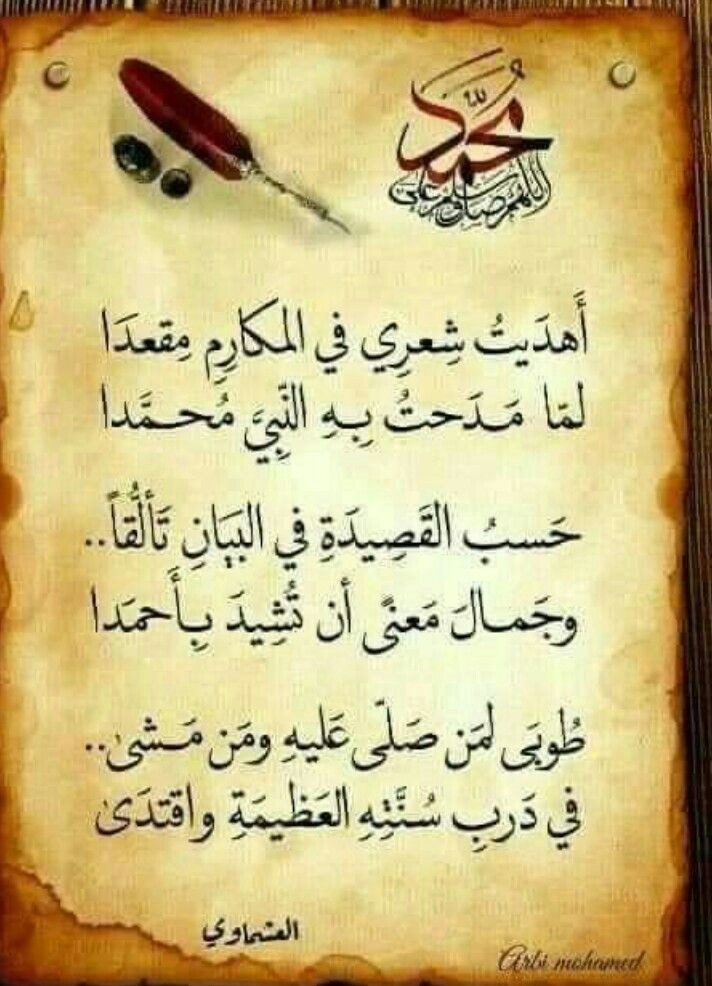 محمد
اللهم صل وسلم على
أَهدَيتُ شِعرِي في المكارِمِ مِقعدَا
لمّا مَدَحتُ بِهِ النّبِيَّ مُحمَّدا
حَسبُ القَصِيدَةِ في البَيَانِ تَألُّقاً..
وجَمالَ مَعنىً أن تُشِيدَ بِأَحمَدا
طُوبَى لمَن صَلّى عَليهِ ومَن مَشىٰ..
في دَربِ سُنَّتِهِ العَظِيمَةِ واقتدَىٰ
العشماوي
Arbi mohamed